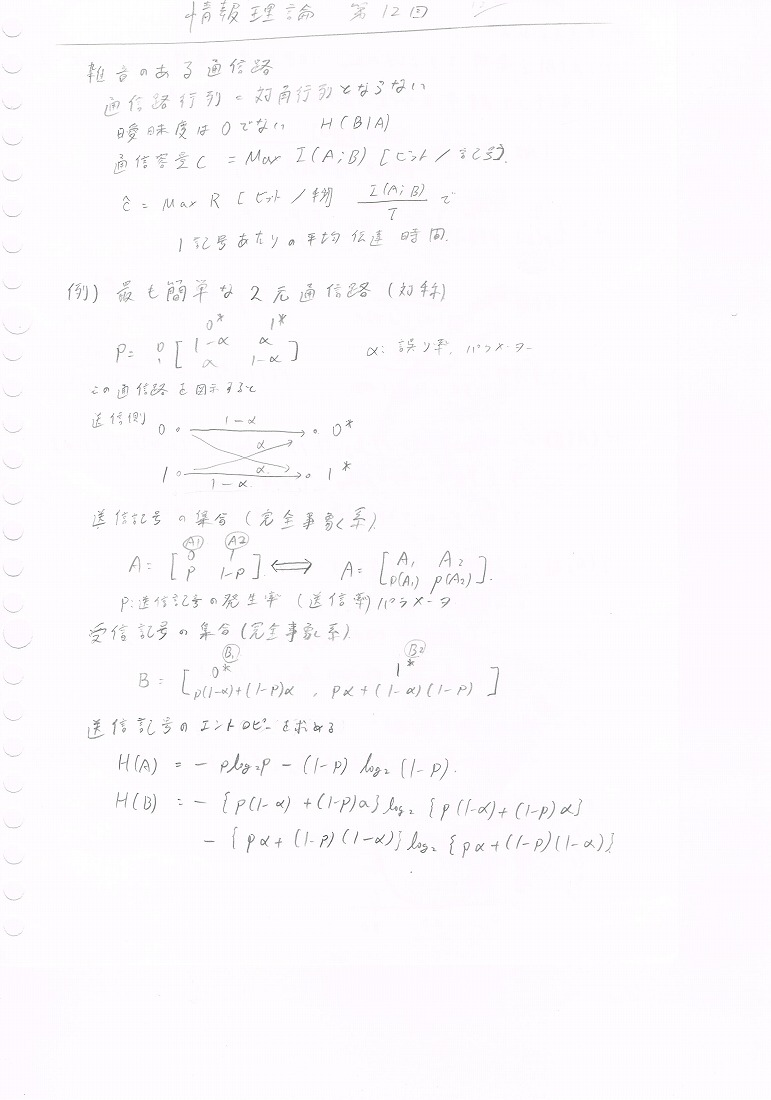 情報理論 第12回
雑音のある通信路
通信路行列 = 対角行列とならない
曖昧度は0でない H(B|A)
通信容量C = Max I(A;B) [ビット/記号].
Ĉ = Max R [ビット/秒] I(A;B)/T で
1記号あたりの平均伝達時間.
例) 最も簡単な2元通信路(対称)
0* 1*
P= 0 [ 1-α α
1 α 1-α ] α: 誤り率, パラメーター
この通信路を図示すると
送信側 0 1-α 0*
α
1 α 1*
1-α
送信記号の集合(完全事象系)
A1 A2
A= [ 0 1 ⟺ A= [ A1 A2
P 1-P ] p(A1) p(A2) ].
P:送信記号の発生率(送信率)パラメータ
受信記号の集合(完全事象系)
B1 B2
B= [ 0* 1*
p(1-α)+(1-p)α , pα+(1-α)(1-p) ]
送信記号のエントロピーを求める
H(A) = - plog₂p - (1-p) log₂ (1-p).
H(B) = - {p(1-α)+(1-p)α} log₂ {p(1-α)+(1-p)α}
- {pα+(1-p)(1-α)} log₂ {pα+(1-p)(1-α)}